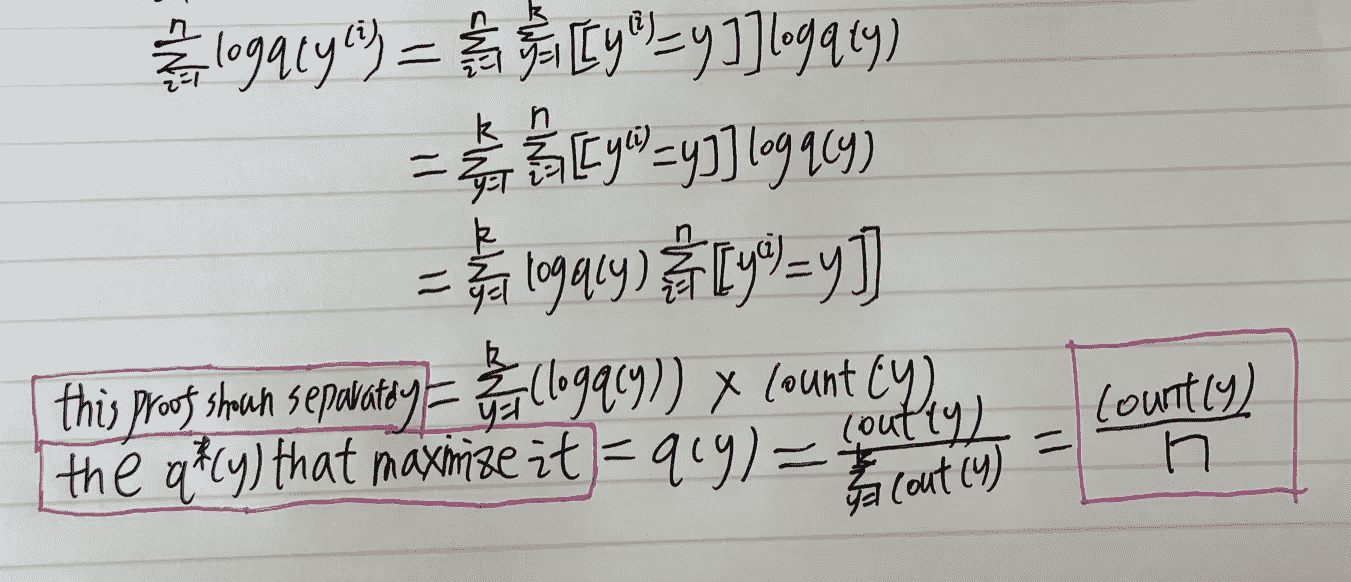 n∑i=1 log q(y^(i)) = n∑i=1 k∑y=1 [[y^(i)=y]] log q(y)
= k∑y=1 n∑i=1 [[y^(i)=y]] log q(y)
= k∑y=1 log q(y) n∑i=1 [[y^(i)=y]]
this proof shown separately = k∑y=1 (log q(y)) × count(y)
the q*(y) that maximize it = q(y) = cout(y) / k∑y=1 cout(y) = count(y) / n